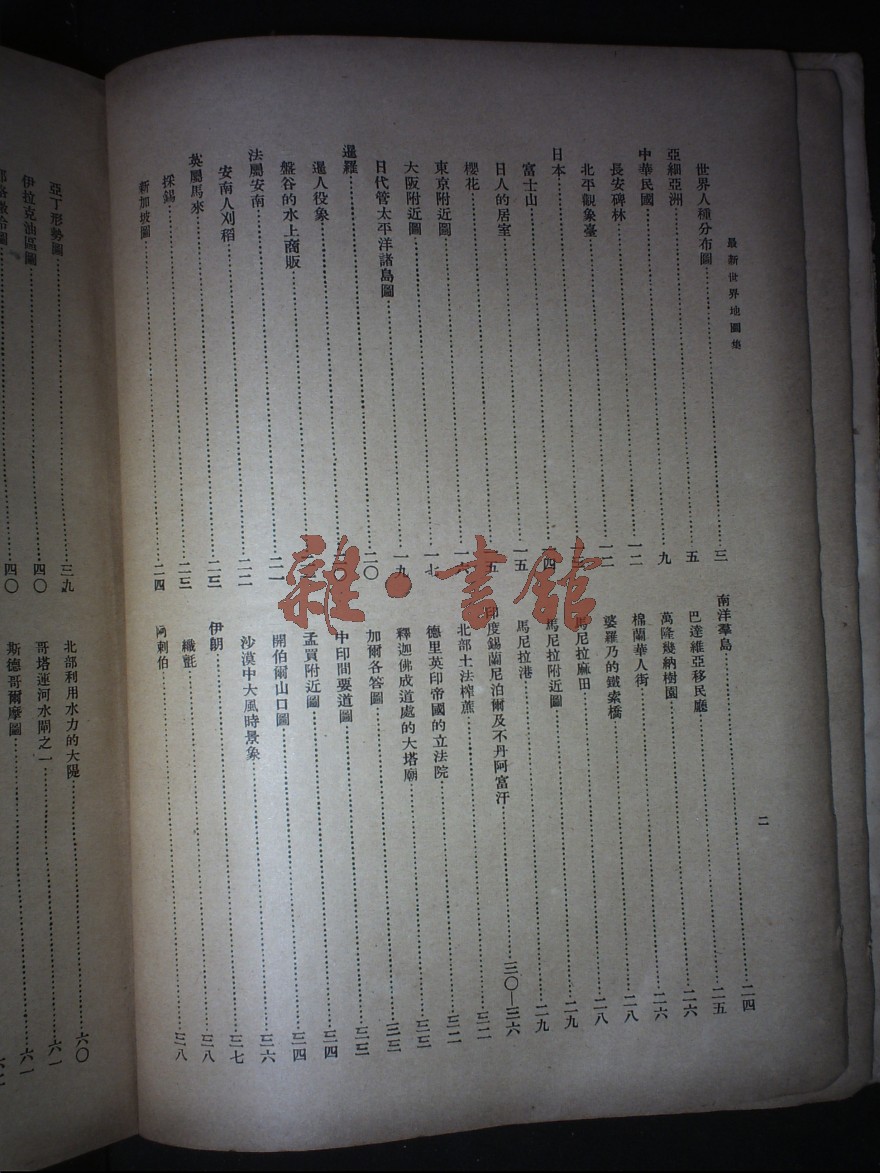 最新世界地圖集
二
世界人種分布圖……三
亞細亞洲……五
中華民國……九
長安碑林……一二
北平觀象臺……一二
日本……
富士山……四
日人的居室……一五
櫻花……五
東京附近圖……
大阪附近圖……一七
日代管太平洋諸島圖……一九
暹羅……二〇
暹人役象……〇
盤谷的水上商販……
法屬安南……二一
安南人刈稻……二二
英屬馬來……二三
採錫……二三
新加坡圖……二四
南洋羣島……二四
巴達維亞移民廳……二五
萬隆幾納樹園……二六
棉蘭華人街……二六
婆羅乃的鐵索橋……二八
馬尼拉麻田……二八
馬尼拉附近圖……二九
馬尼拉港……二九
印度錫蘭尼泊爾及不丹阿富汗……三〇—三六
北部土法榨蔗……三二
德里英印帝國的立法院……三二
釋迦佛成道處的大塔廟……三三
加爾各答圖……三三
中印間要道圖……三三
孟買附近圖……三四
開伯爾山口圖……三四
沙漠中大風時景象……三六
伊朗……三七
織氈……三八
阿剌伯……三八
亞丁形勢圖……三九
伊拉克油區圖……四〇
四〇
北部利用水力的大隄……六〇
哥塔運河水閘之一……六一
斯德哥爾摩圖……六一
雜·書館